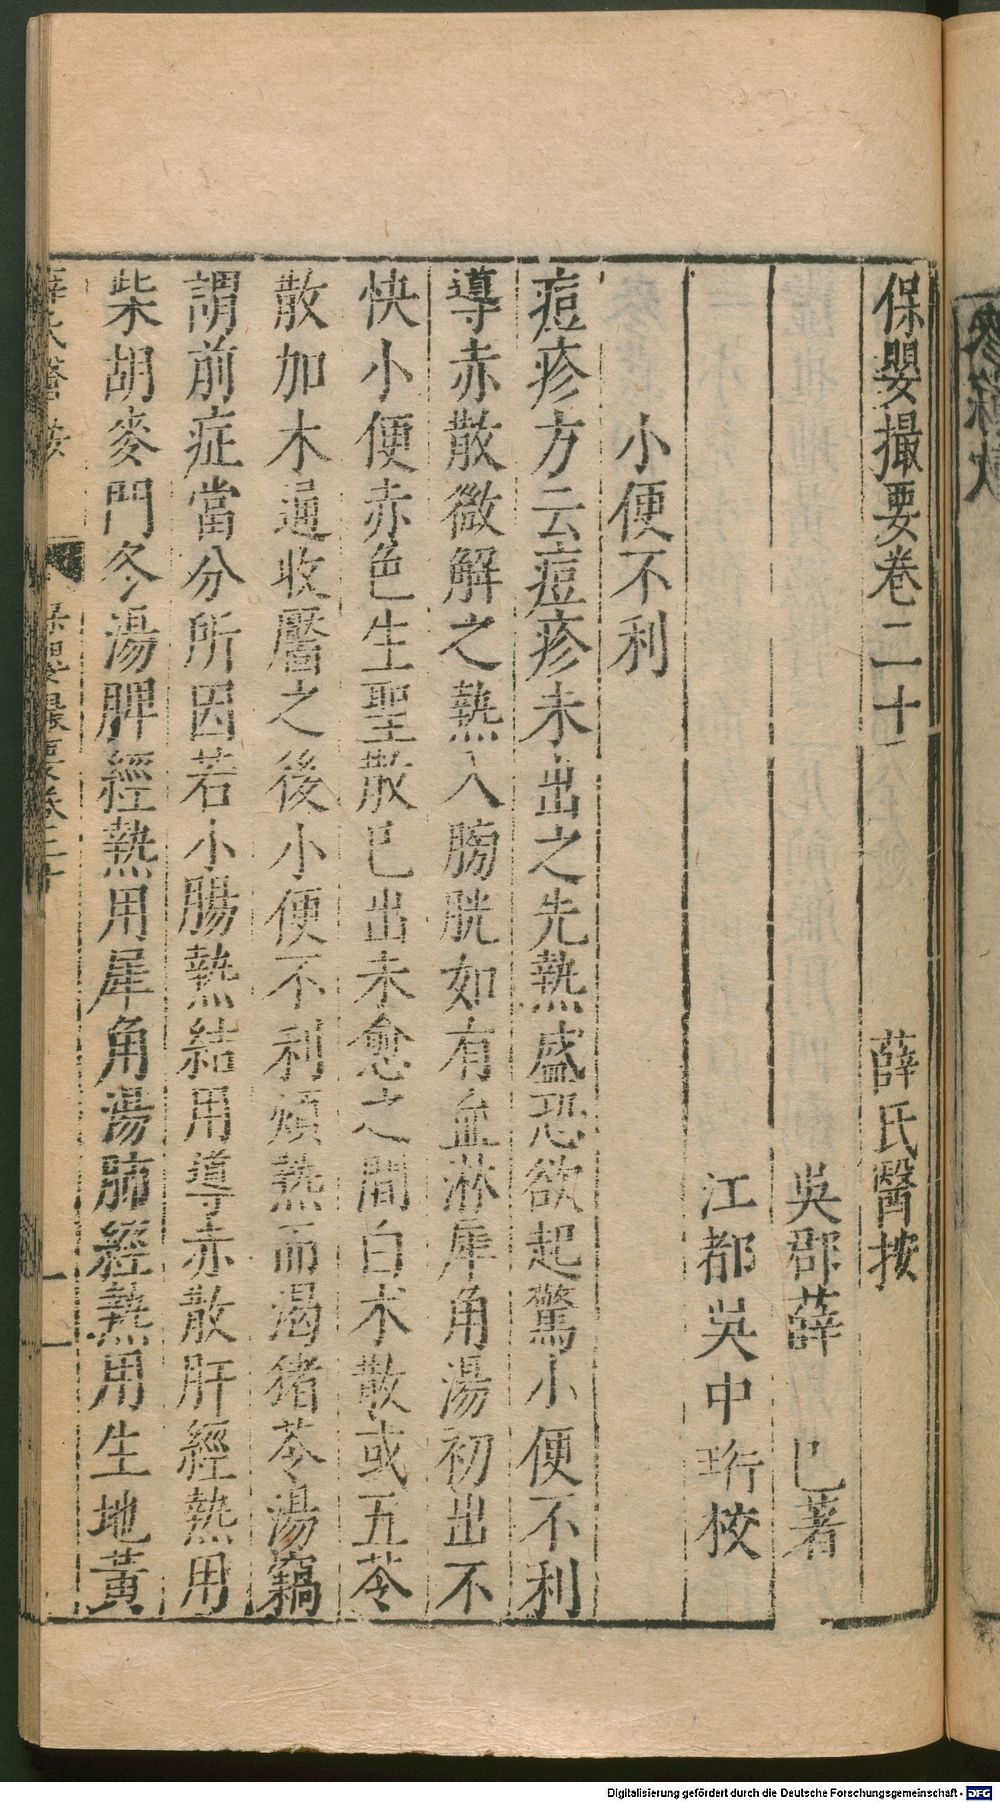 保嬰撮要卷二十 薛氏醫按
吳郡薛 己著
江都吳中珩校
小便不利
痘疹方云痘疹未出之先熱盛恐欲起驚小便不利
導赤散微解之熱入膀胱如有血淋犀角湯初出不
快小便赤色生聖散已出未愈之間白朮散或五苓
散加木通收靨之後小便不利煩熱而渴猪苓湯竊
謂前症當分所因若小腸熱結用導赤散肝經熱用
柴胡麥門冬湯脾經熱用犀角湯肺經熱用生地黃
薛氏醫按 保嬰撮要卷二十 一
Digitalisierung gefördert durch die Deutsche Forschungsgemeinschaft - DFG